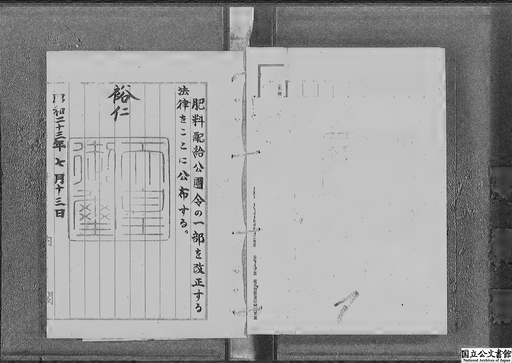 肥料配給公團令の一部を改正する
法律をここに公布する。
裕仁
天皇
御璽
昭和二十三年七月十三日
国立公文書館
National Archives of Japan